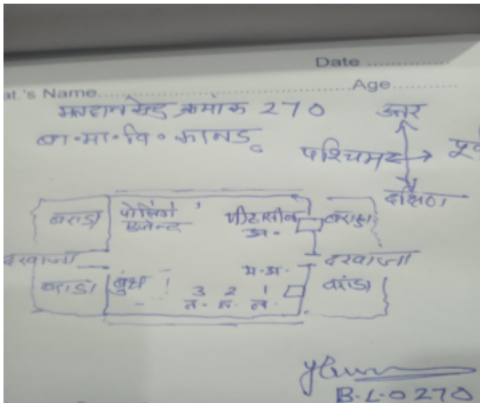 Date ............
at.'s Name.................... Age............
मतदान केंद्र क्रमांक 270
बा॰मा॰वि॰ कानड़॰
उत्तर
पश्चिम
दक्षिण
बरांडा
पोलिंग
एजेन्ट
पीठासीन
अ॰
बरांडा
दरवाजा
दरवाजा
बरांडा
बुथ
म॰अ॰
3 2 1
बरांडा
B.L.O 270